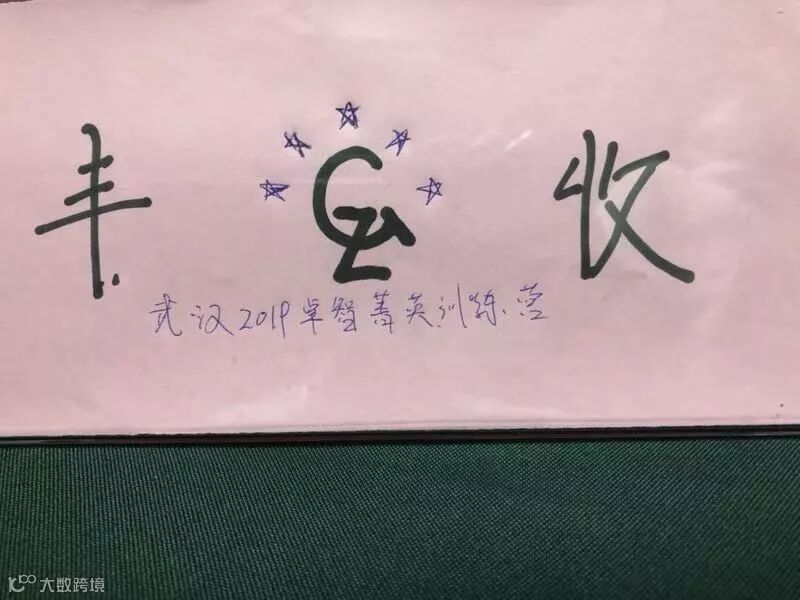 丰 GZ 收
武汉2019卓智菁英训练营
大数跨境